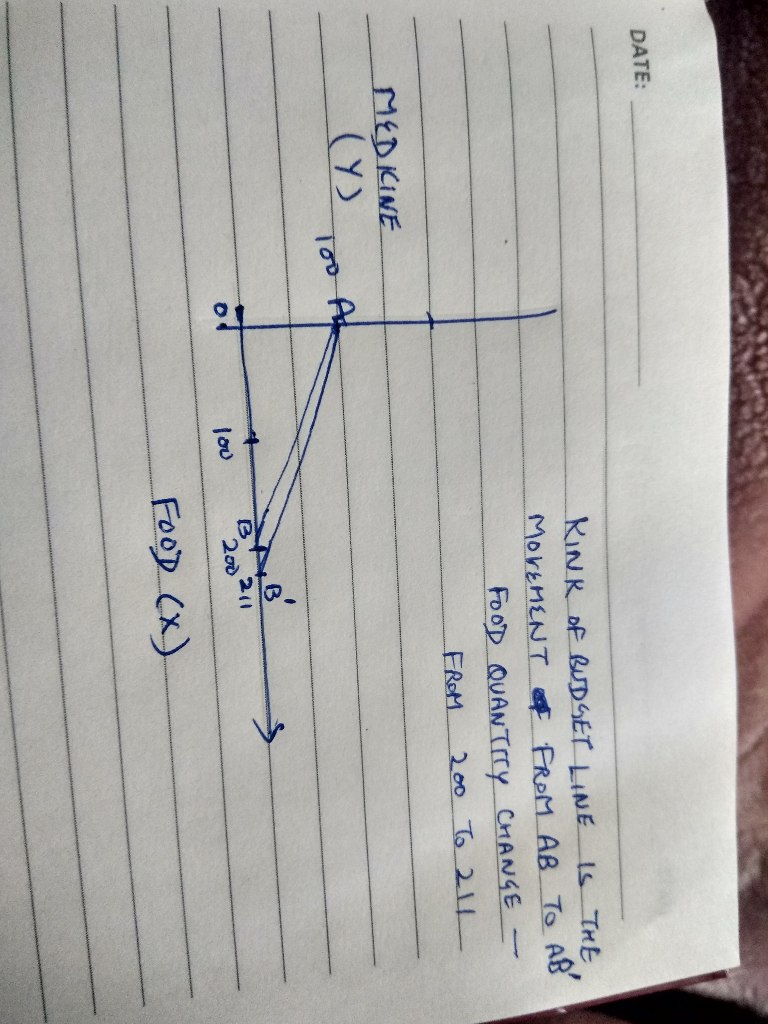 DATE:
KINK OF BUDGET LINE IS THE
MOVEMENT FROM AB TO AB'
FOOD QUANTITY CHANGE -
FROM 200 TO 211
MEDKINE
(Y)
100 A
0
100
B
200
211
B'
FOOD (X)